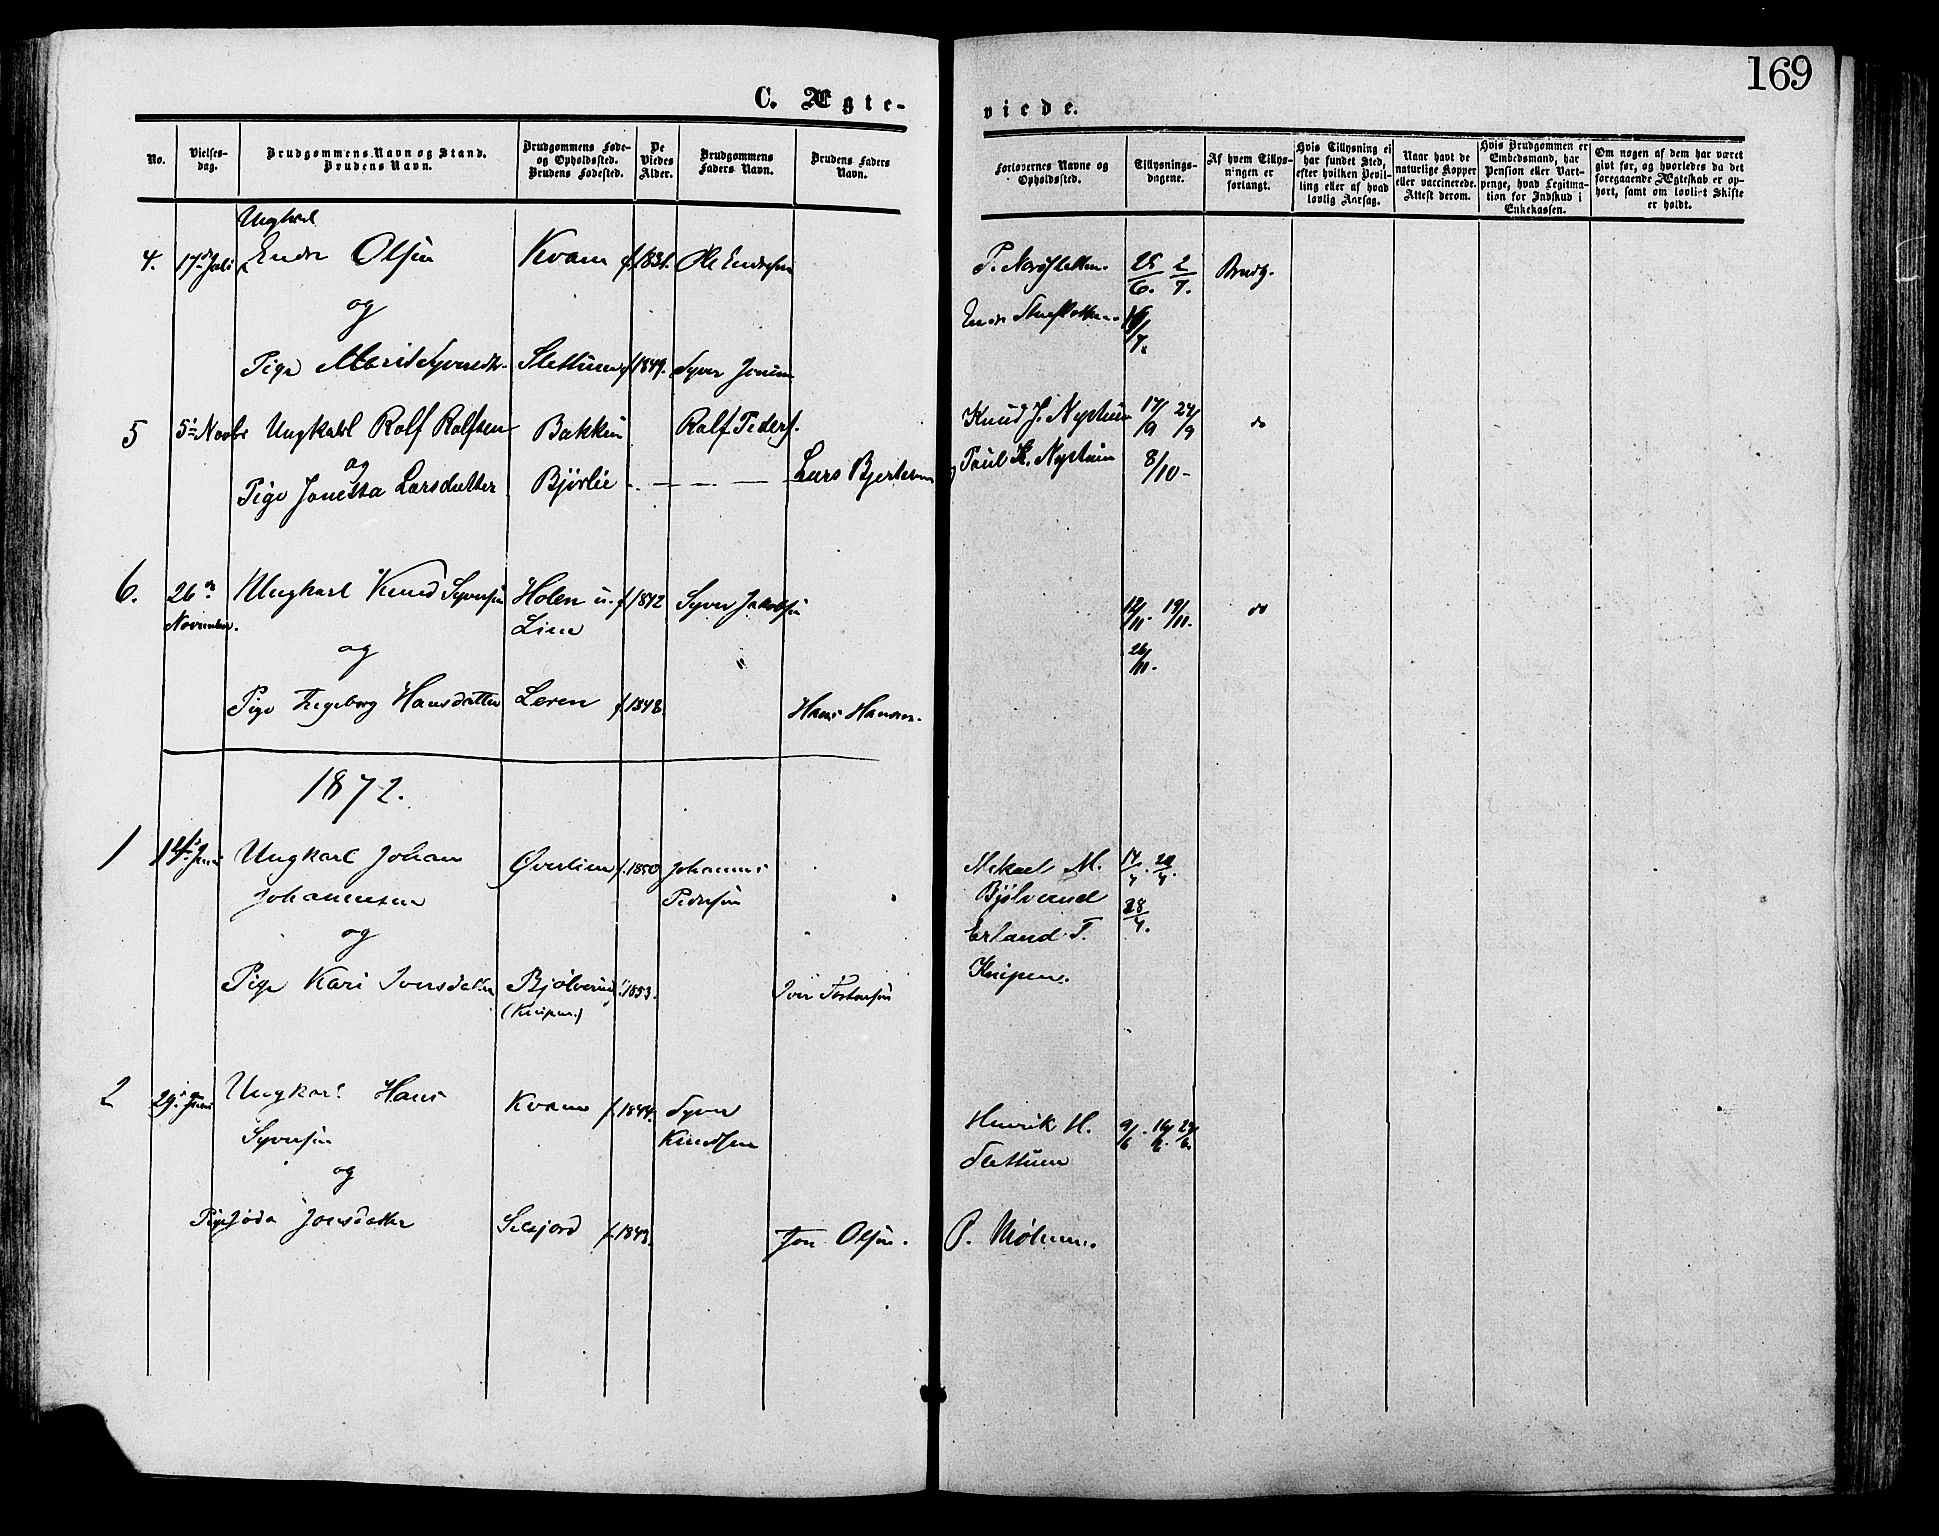 169
C. Ægte-
viede.
No.
Vielses-
dag.
Brudgommens Navn og Stand.
Brudens Navn.
Brudgommens Føde-
og Opholdssted.
Brudens Fødested.
De
Viedes
Alder.
Brudgommens
Faders Navn.
Brudens Faders
Navn.
Forlovernes Navne og
Opholdssted.
Tillysnings-
dagene.
Af hvem Tillys-
ningen er
forlangt.
Hvis Tillysning ei
har fundet Sted,
efter hvilken Bevil-
ling eller af hvad
lovlig Aarsag.
Naar havt de
naturlige Kopper
eller vaccinerede.
Attest derom.
Hvis Brudgommen er
Embedsmand, har
Pension eller Vart-
penge, hvad Legitima-
tion for Indskud i
Enkekassen.
Om nogen af dem har været
givt før, og hvorledes da det
foregaaende Ægteskab er op-
hørt, samt om lovligt Skifte
er holdt.
Ungkarl
4. 17de Juli Endre Olsen Kvam f. 1831. Ole Endresen
og
Pige Marit Syversdtr. Slettum f. 1849. Syver Jonsen
25/6. 2/7. Brudg.
5 5te Novbr Ungkarl Rolf Rolfsen Bakken Rolf Peders.
og
Pige Larsdatter Bjørlie Lars
Knud J. Nystuen 17/9 24/9 do
Paul K. Nystuen 8/10-
6. 26de Ungkarl Knud Syversen Holen u. f. 1842 Syver Jakobsen
November. Lien
12/11. 19/11. do
og
26/11.
Pige Ingeborg Hansdatter Leren f. 1848. Hans Hansen.
1872.
1 Juni Ungkarl Johan Øverlien f. 1850 Johannes
Johannesen Pedersen
og
Pige Kari Iversdatter Bjølverud 1853. Iver Torstensen
(Knipen.)
Mikael M.
Bjølverud 28/4.
Erland T.
Knipen.
2 29de Juni Ungkarl Hans Kvam f. 1844. Syver
Syversen Knudsen
og
Pige Jøda Jonsdatter f. 1843. Jon Olsen.
Henrik H. 9/6. 16/6. 23/6.
Slettum
P. Møhum.